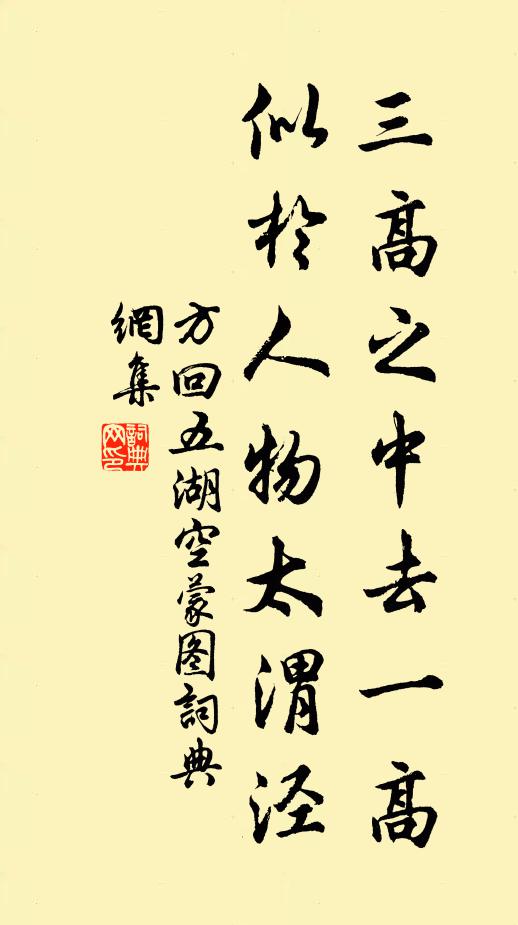 三高之中去一高
似於人物太渭泾
方回五湖空蒙图詞典
網集
詞典
网印